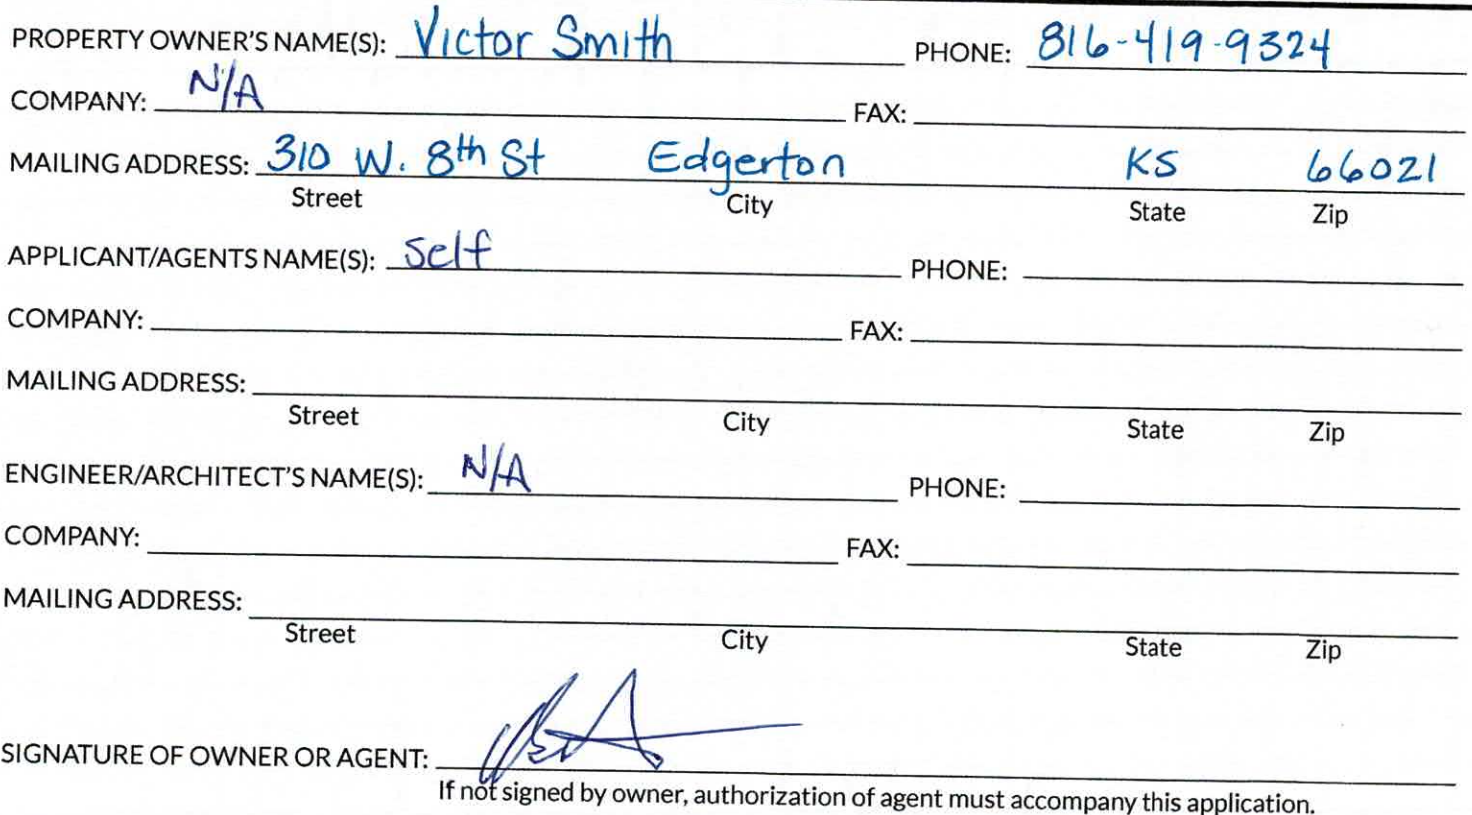 PROPERTY OWNER'S NAME(S): Victor Smith PHONE: 816-419-9324
COMPANY: N/A FAX:
MAILING ADDRESS: 310 W. 8th St Edgerton KS 66021
Street City State Zip
APPLICANT/AGENTS NAME(S): Self PHONE:
COMPANY: FAX:
MAILING ADDRESS:
Street City State Zip
ENGINEER/ARCHITECT'S NAME(S): N/A PHONE:
COMPANY: FAX:
MAILING ADDRESS:
Street City State Zip
SIGNATURE OF OWNER OR AGENT:
If not signed by owner, authorization of agent must accompany this application.